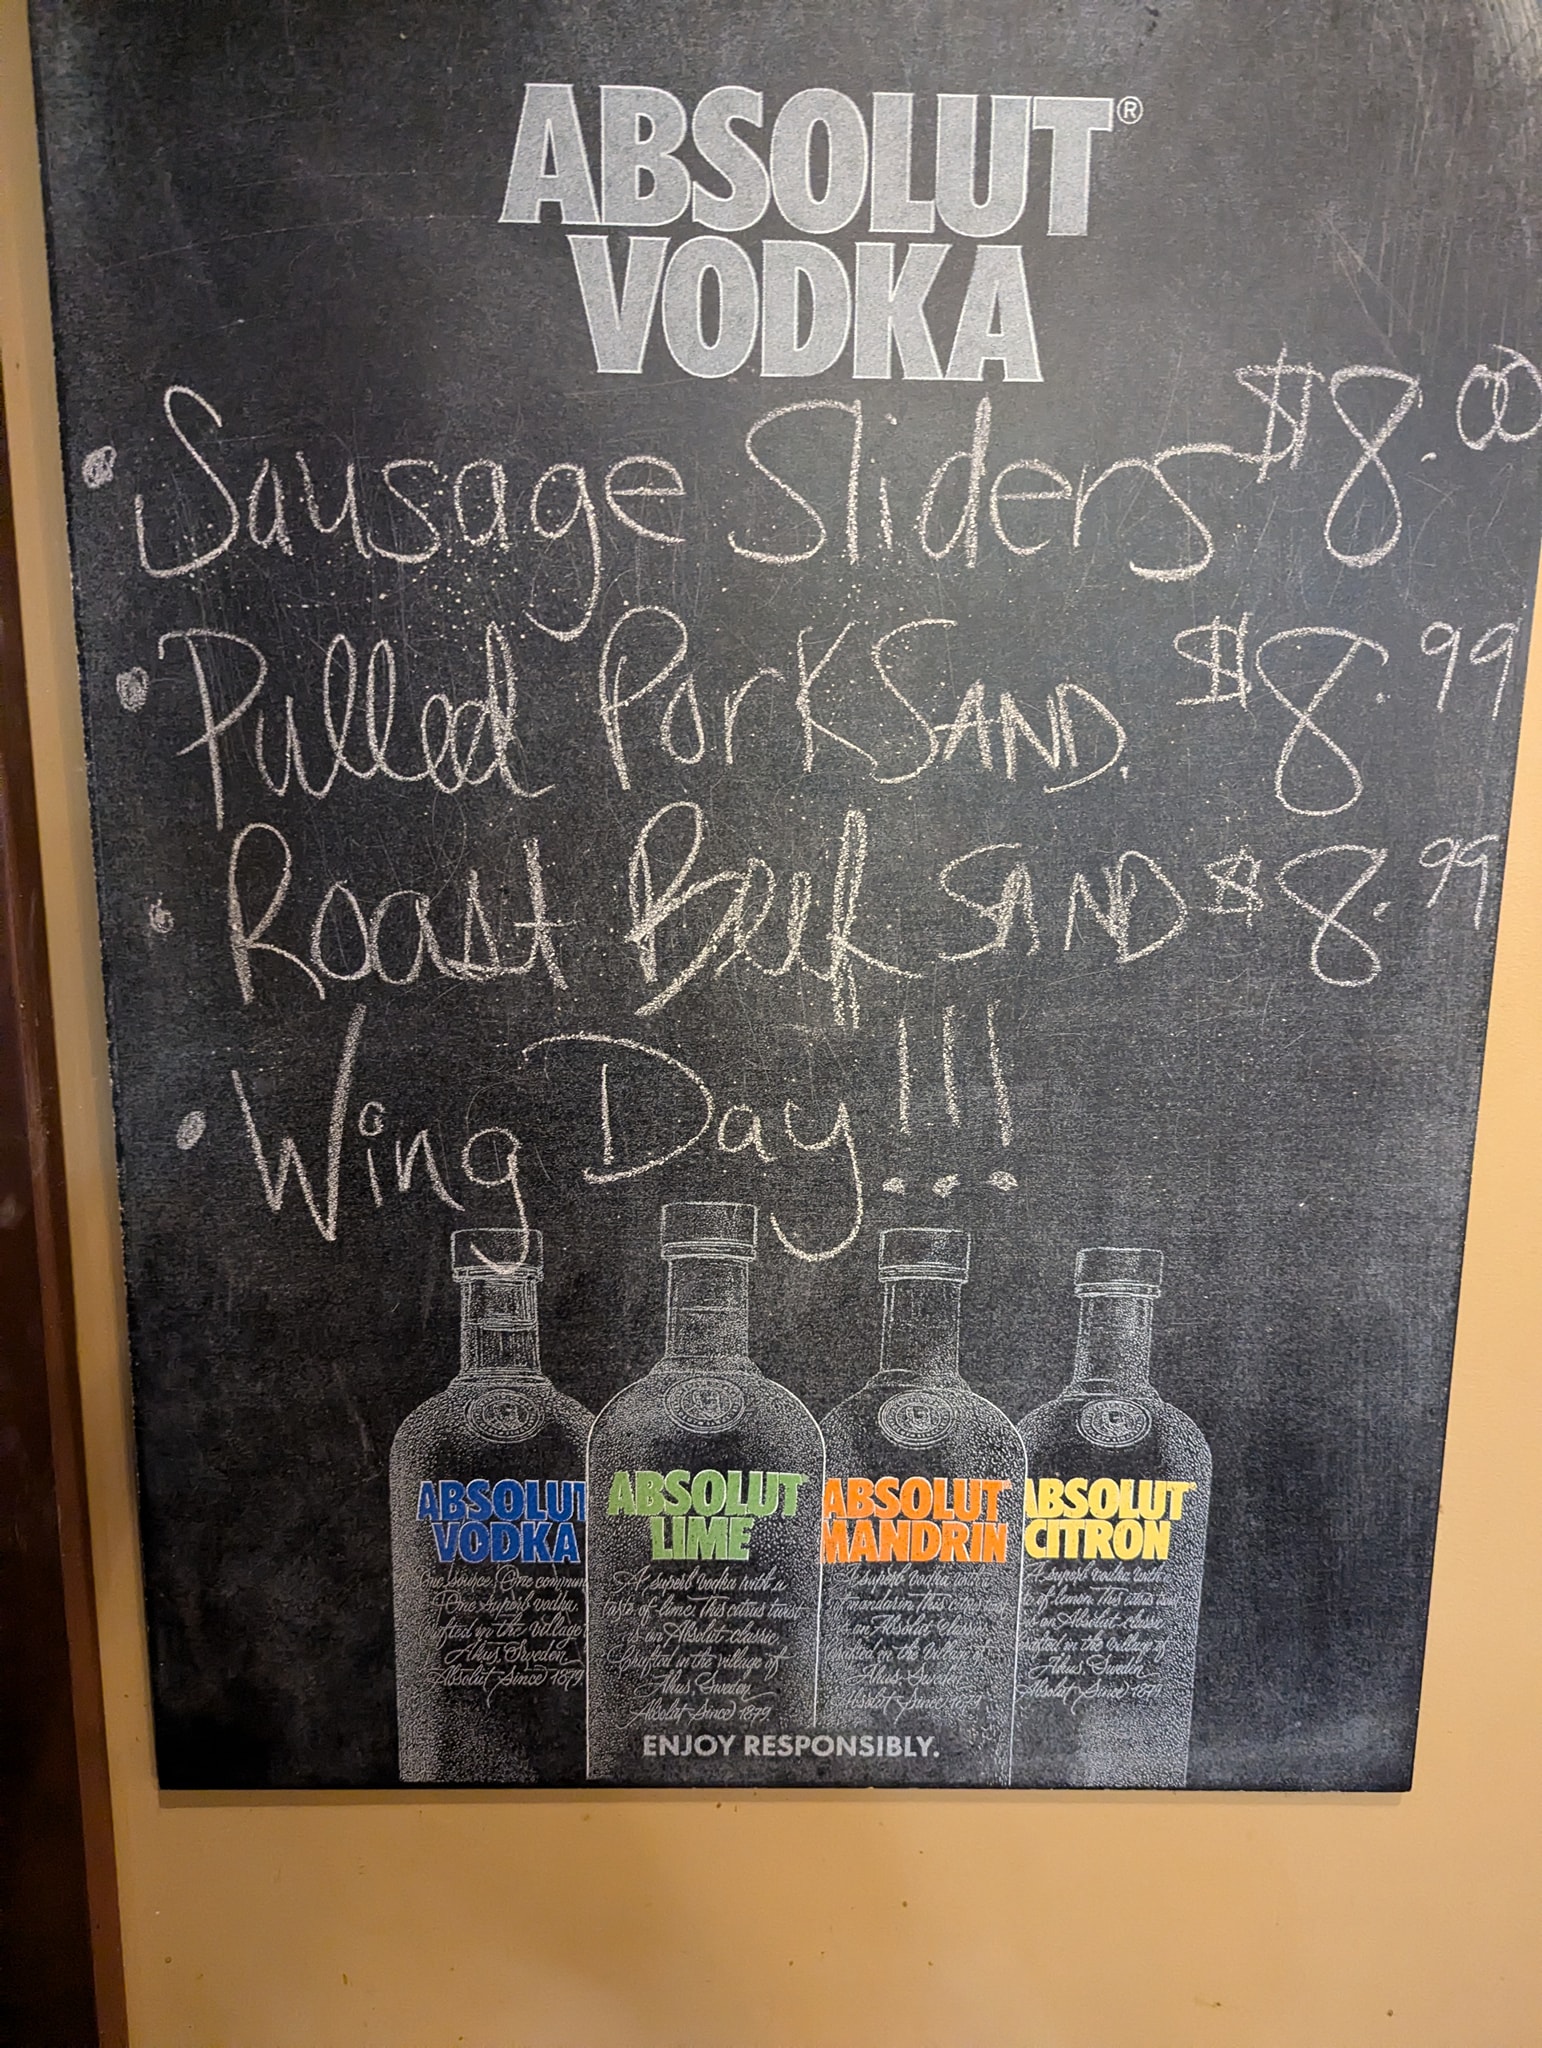 ABSOLUT®
VODKA
• Sausage Sliders $8.00
• Pulled Pork SAND. $8.99
• Roast Beef SAND $8.99
• Wing Day!!!
ABSOLUT
VODKA
One source. One commun
One superb vodka.
Crafted in the village
Åhus, Sweden
Absolut Since 1879.
ABSOLUT
LIME
A superb vodka with a
taste of lime. This citrus twist
is an Absolut classic.
Crafted in the village of
Åhus, Sweden
Absolut Since 1879
ABSOLUT
MANDRIN
A superb vodka with a
of mandarin. This citrus
is an Absolut classic
Crafted in the village of
Åhus, Sweden
Absolut Since 1879
ABSOLUT
CITRON
A superb vodka with
of lemon. This citrus
is an Absolut classic
Crafted in the village of
Åhus, Sweden
Absolut Since 1879
ENJOY RESPONSIBLY.